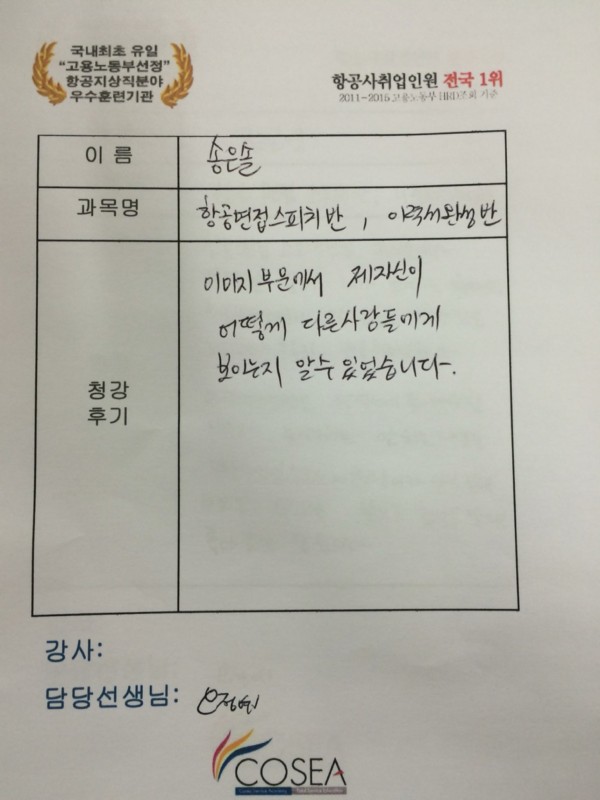 국내최초 유일
“고용노동부선정”
항공지상직분야
우수훈련기관
항공사취업인원 전국 1위
2011~2015 고용노동부 HRD조회 기준
이 름
송은솔
과목명
항공면접스피치반 , 이력서완성반
청강
후기
이미지부문에서 제자신이
어떻게 다른사람들에게
보이는지 알수 있었습니다.
강사:
담당선생님:
COSEA